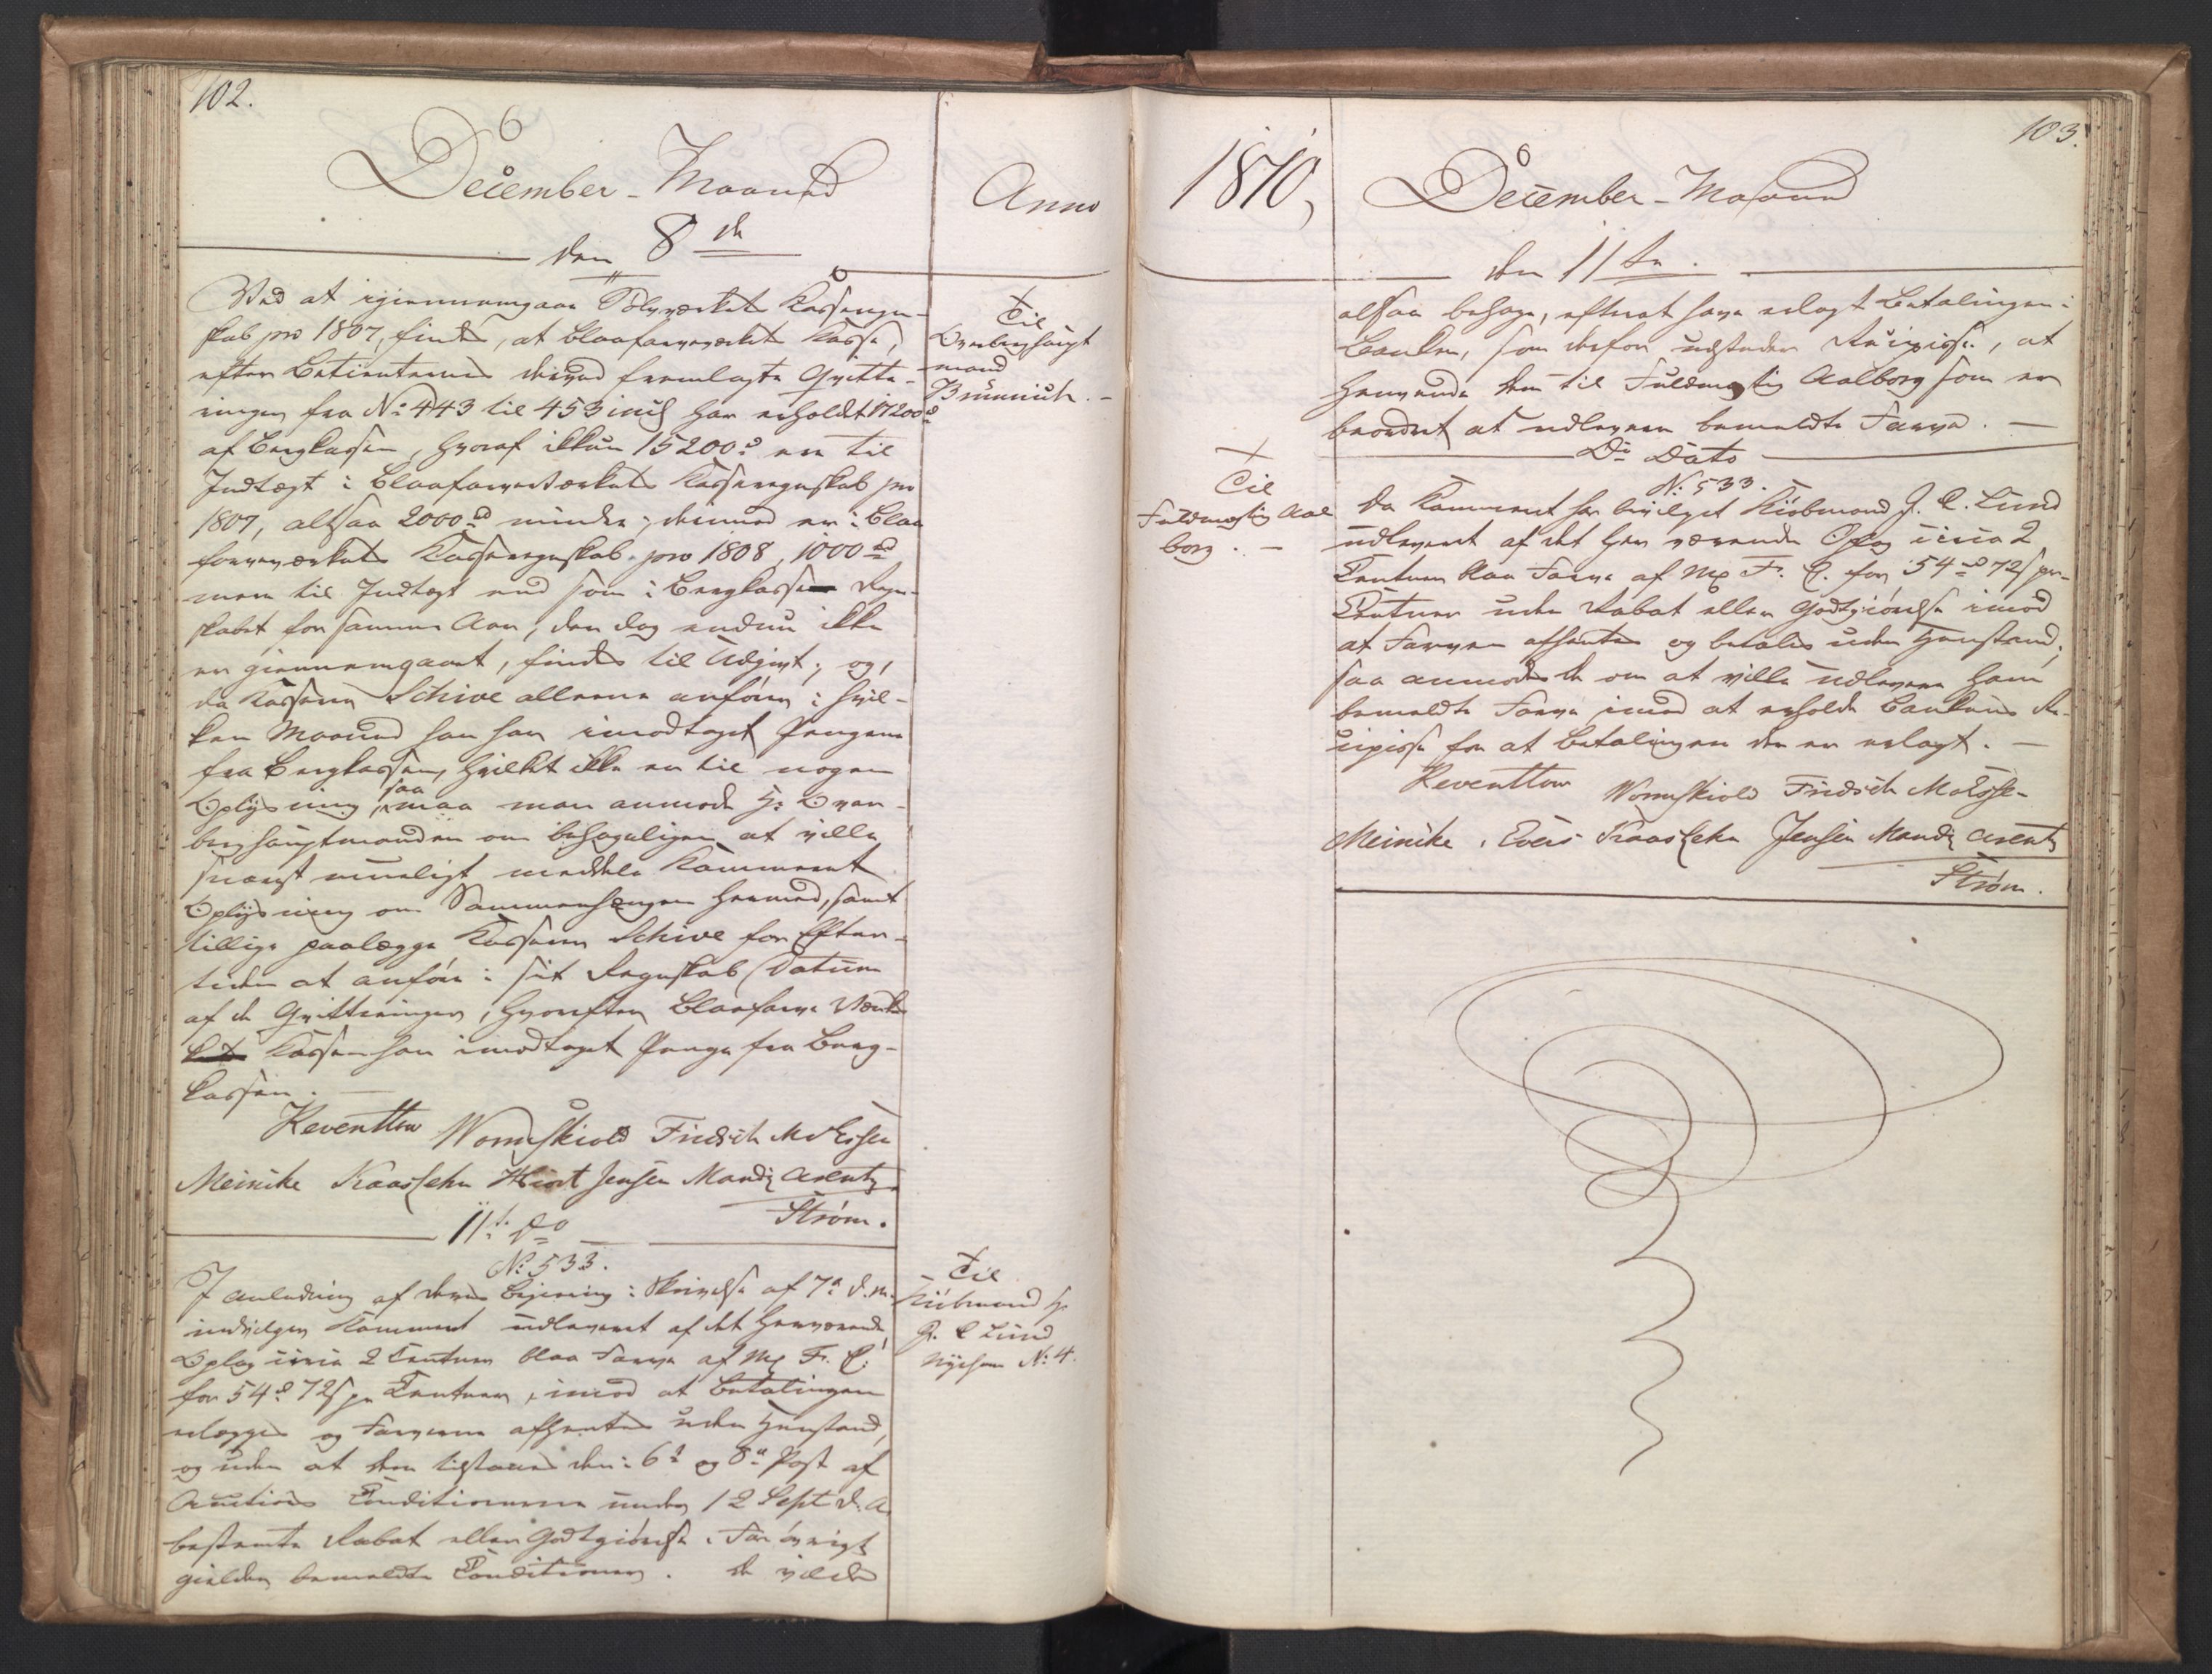 102.
December-Maaned
Anno
den 8de
Ved at igiennemgaae Sølvværkets Casseregn-
skab pro 1807, findes, at Blaafarveværkets Kasse,
efter Betienternes derved fremlagte Qvitte-
ringer fra No 443 til 453 incl har erholdt 17200 rd
af Bergkassen, hvoraf ikkun 15200 rd ere til
Indtægt i Blaafarveværkets Kasseregnskab pro
1807, altsaa 2000 rd mindre; derimod er i Blaa
farveværkets Kasseregnskab pro 1808, 1000 rd
mere til Indtægt end som i Bergkasse Regn-
skabet for samme Aar, der dog endnu ikke
er giennemgaaet, findes til Udgivt; og,
da Kasserer Schive allene anfører i hvil-
ken Maaned han har imodtaget Pengene
fra Bergkassen, hvilket ikke er til nogen
Oplysning, saa maa man anmode Hr Over-
berghauptmanden om behageligen at ville
snarest mueligt meddele Kammeret
Oplysning om Sammenhængen hermed, samt
tillige paalægge Kasserer Schive for Efter-
tiden at anføre i sit Regnskab Datum
af de Qvitteringer, hvorefter Blaafarve Værks
Kassen har imodtaget Penge fra Berg-
kassen. —
Reventlow Wormskiold Fridsch Mösse
Meinike Kaas Lehn Hiort Jensen Mandix Arentz
Strøm.
Til
Overberghaupt
mand
Brünnich. —
11te Do
No 533.
I Anledning af deres Begiering i Skrivelse af 7de d. M.
indvilger Kammeret udleveret af det herværende
Oplag circa 2 Centner blaa Farve af Mk F. C.
for 54 rd 72 s pr Centner, imod at Betalingen
erlægges og Farverne afhentes uden Henstand,
og uden at dem tilstaaes den i 6te og 8de Post af
Auctions Conditionerne under 12 Sept d. A.
bestemte Rabat eller Godtgiørelse. For øvrigt
gielder bemeldte Conditioner. De vilde
Til
Kiöbmand Hr
J. C Lund
Nyehavn No 4.
103.
1810,
December-Maaned
den 11te.
altsaa behage, efterat have erlagt Betalingen i
Banken, som derfor udsteder Recipisse, at
henvende dem til Fuldmægtig Aalborg som er
beordret at udlevere bemeldte Farve. —
Do Dato
No 533.
Til
Fuldmægtig Aal
borg. —
Da Kammeret har bevilget Kiöbmand J. C. Lund
udleveret af det her værende Oplag circa 2
Centner blaa Farve af Mk F. C. for 54 rd 72 s pr
Centner uden Rabat eller Godtgiørelse imod
at Farven afhentes og betales uden Henstand,
saa anmodes De om at ville udlevere ham
bemeldte Farve imod at erholde Bankens Re-
cipisse for at Betalingen der er erlagt. —
Reventlow Wormskiold Fridsch Mösse
Meinike. Evers Kaas Lehn Jensen Mandix Arentz
Strøm.